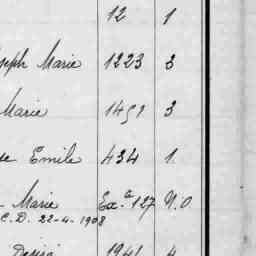 12 1
Joseph Marie 1223 3
Marie 1451 3
Emile 434 1.
Marie Ex. a 127 N.O
C.D. 22-4-1908
Désiré 1941 4